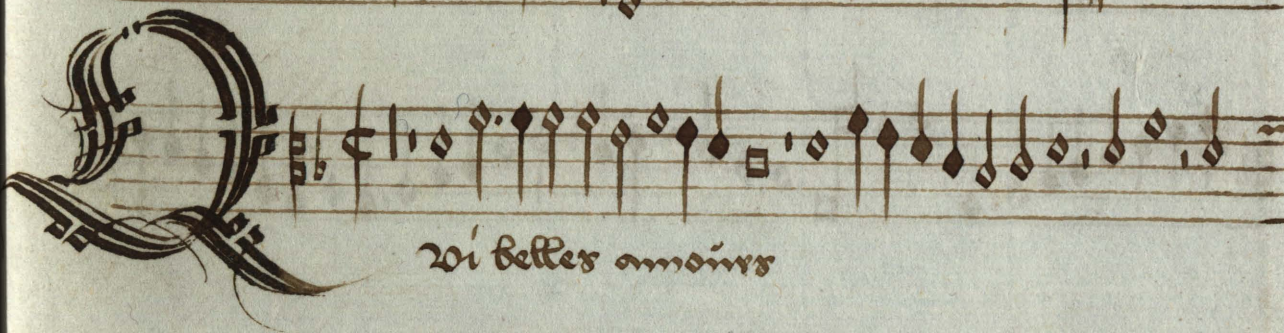 Qui belles amours